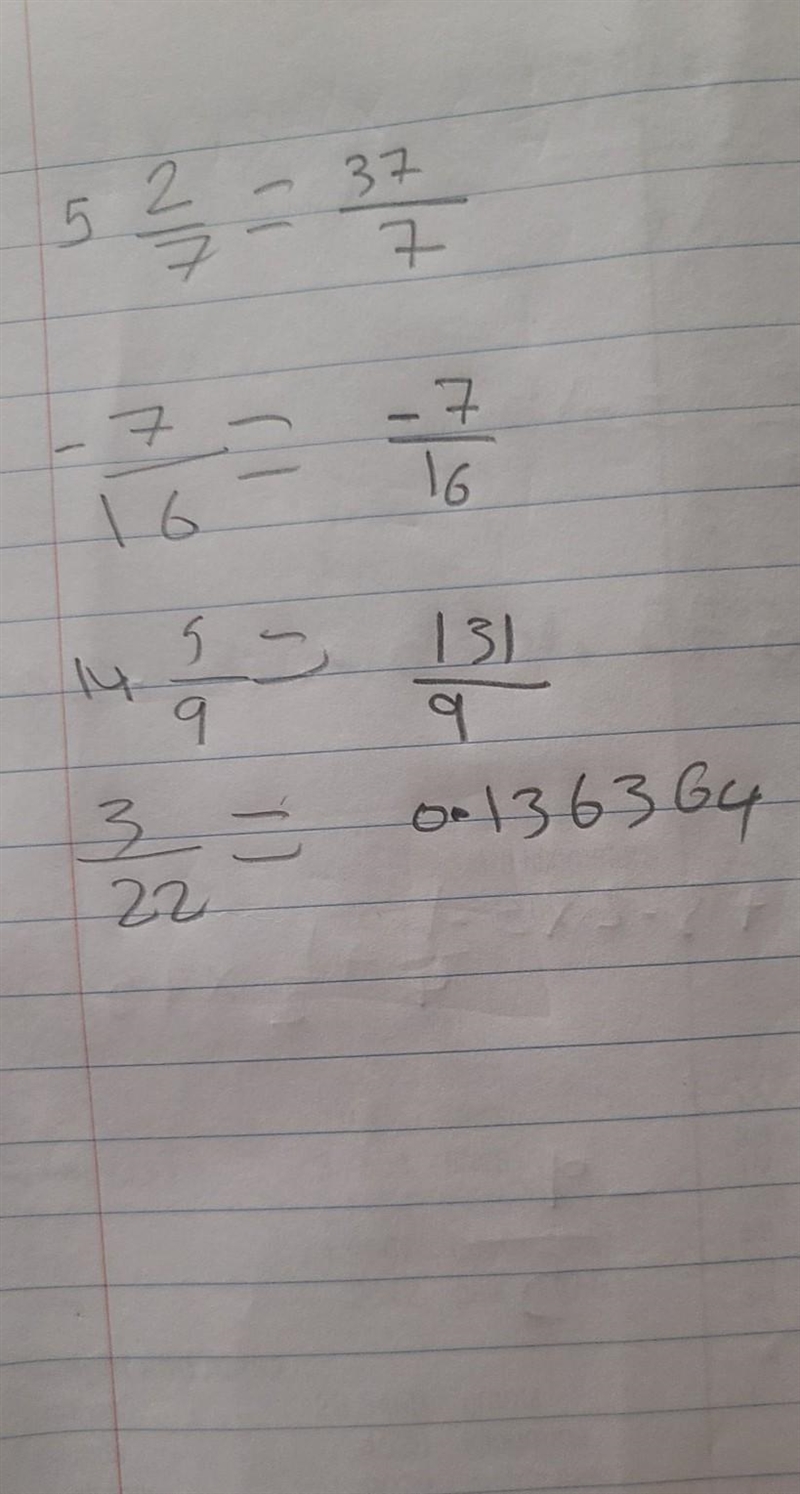 5 2/7 = 37/7
- 7/16 = -7/16
14 5/9 = 131/9
3/22 = 0.136364